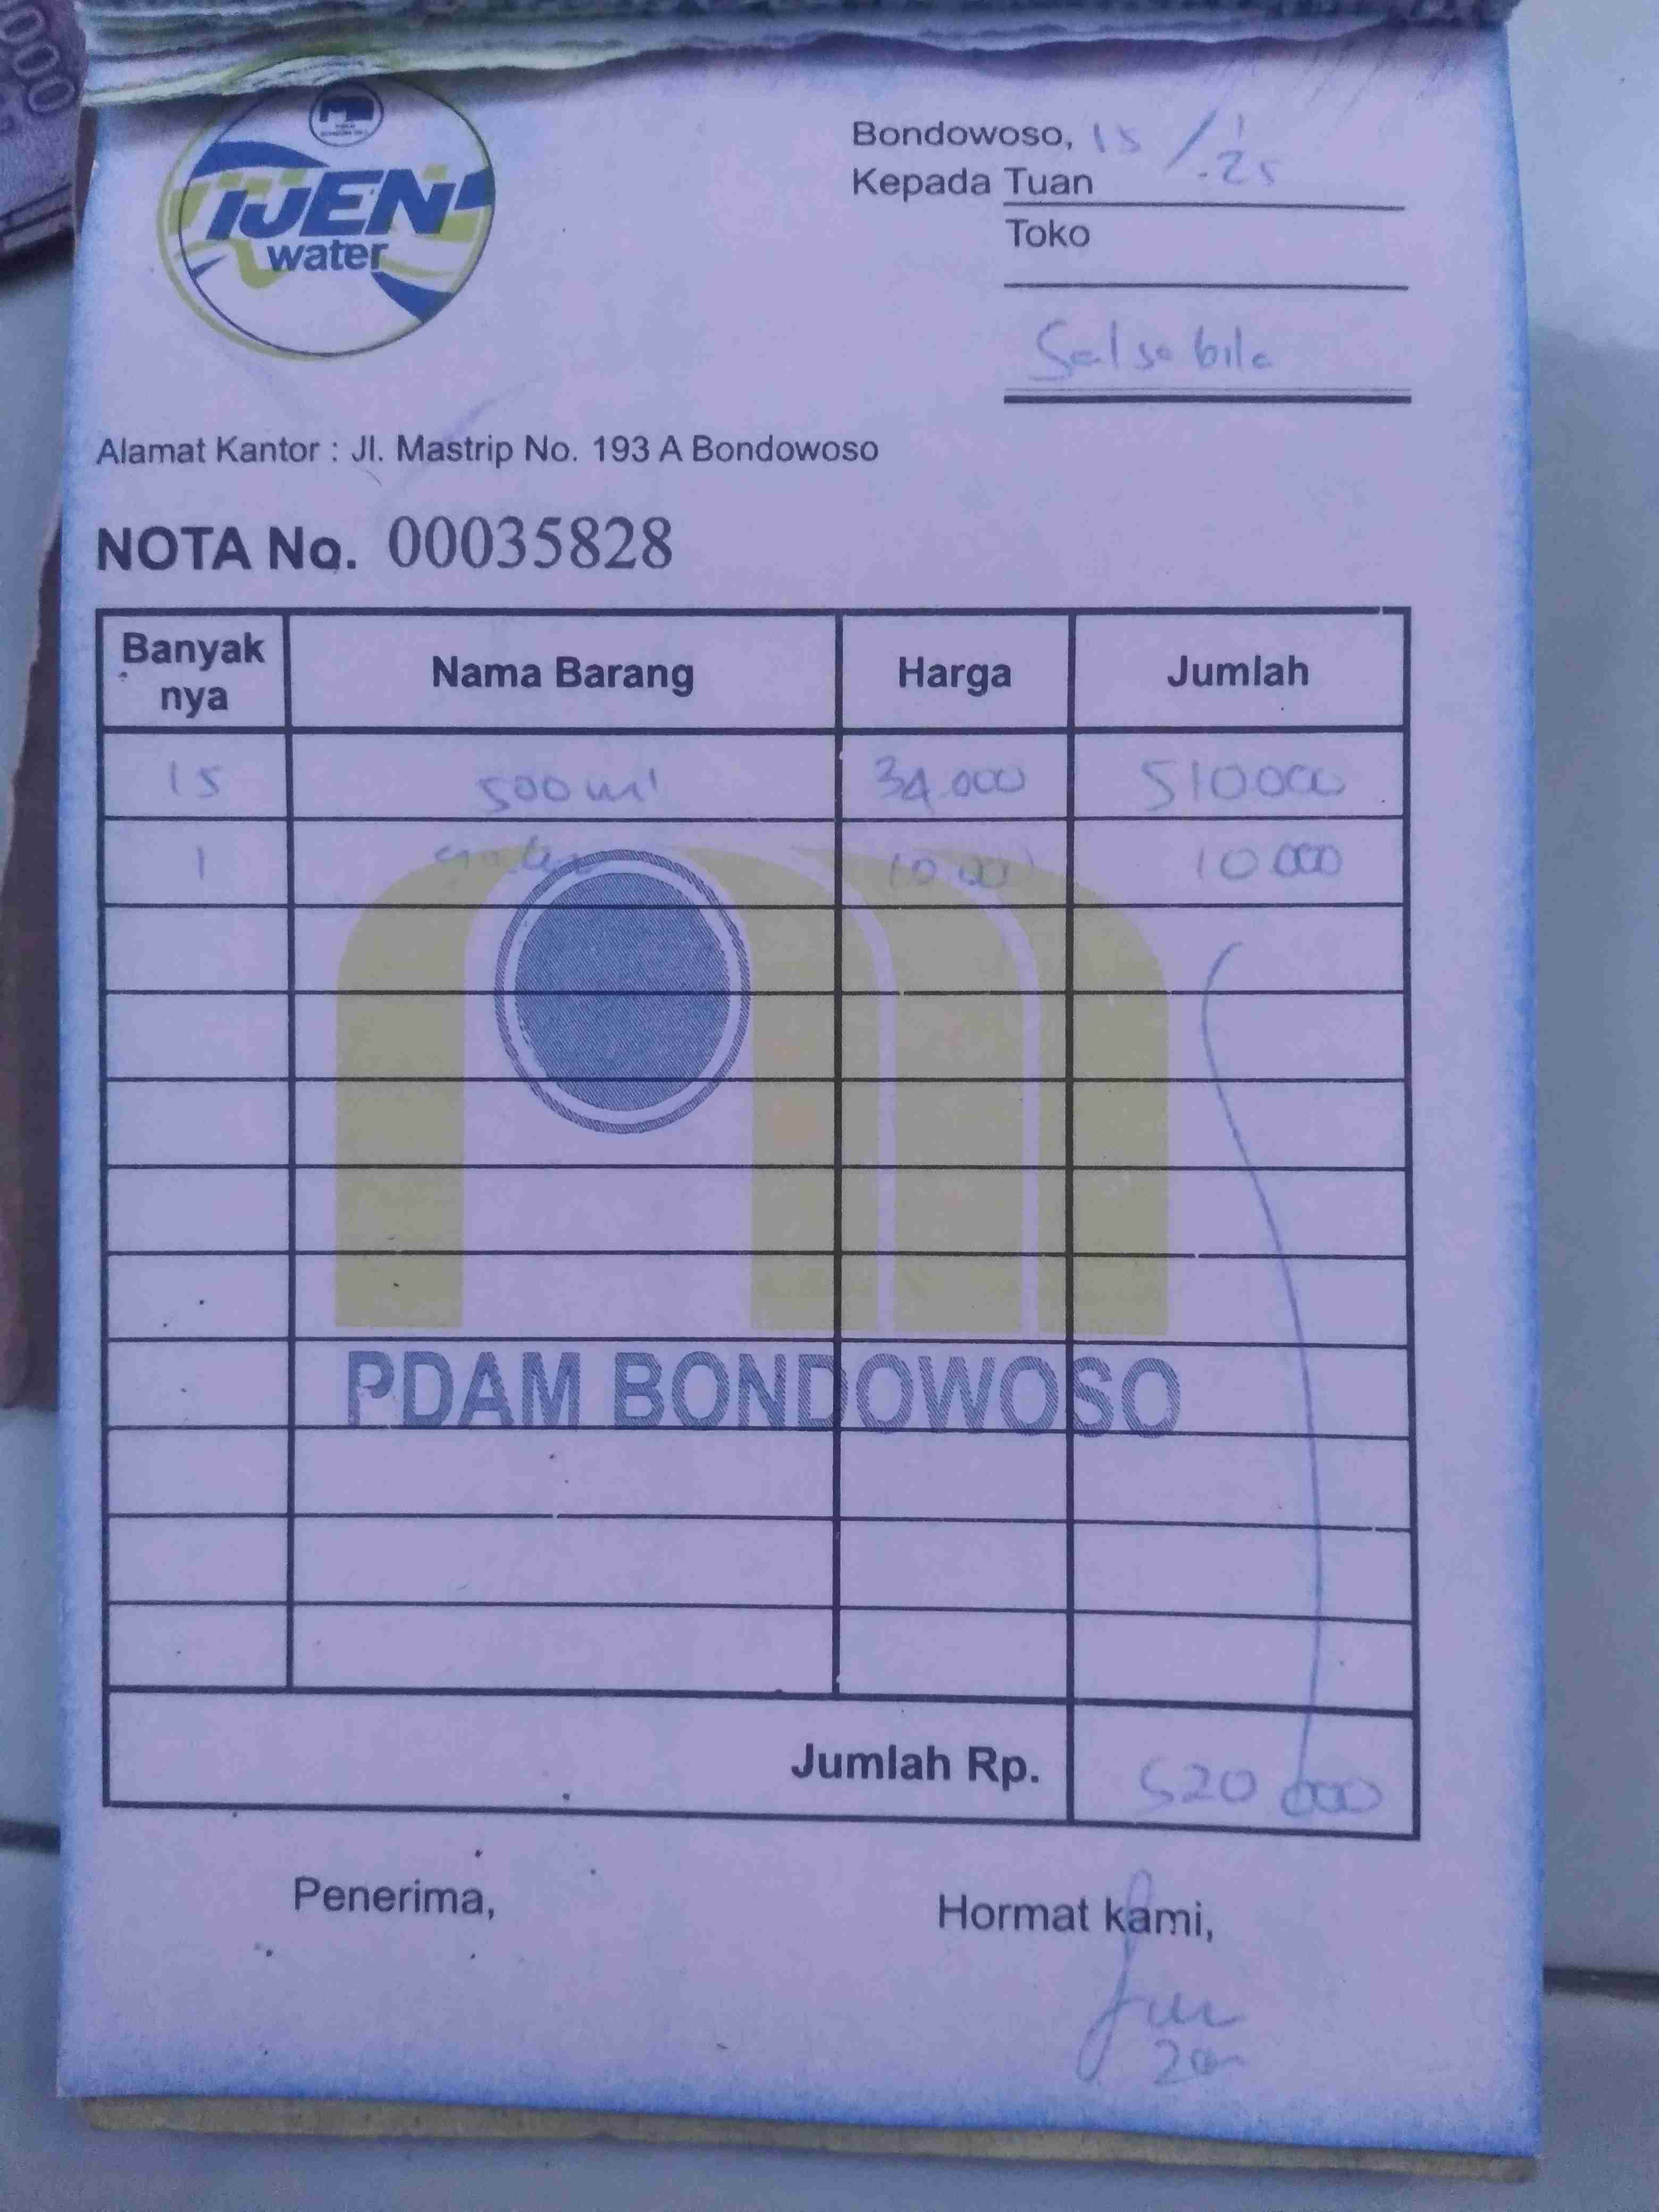 000
IJEN
water
Bondowoso, 15 / 1 - 25
Kepada Tuan
Toko
Salsabila
Alamat Kantor : Jl. Mastrip No. 193 A Bondowoso
NOTA No. 00035828
Banyak nya Nama Barang Harga Jumlah
15 500 ml 34.000 510000
1 10.000 10.000
PDAM BONDOWOSO
Jumlah Rp. 520 000
Penerima, Hormat kami,